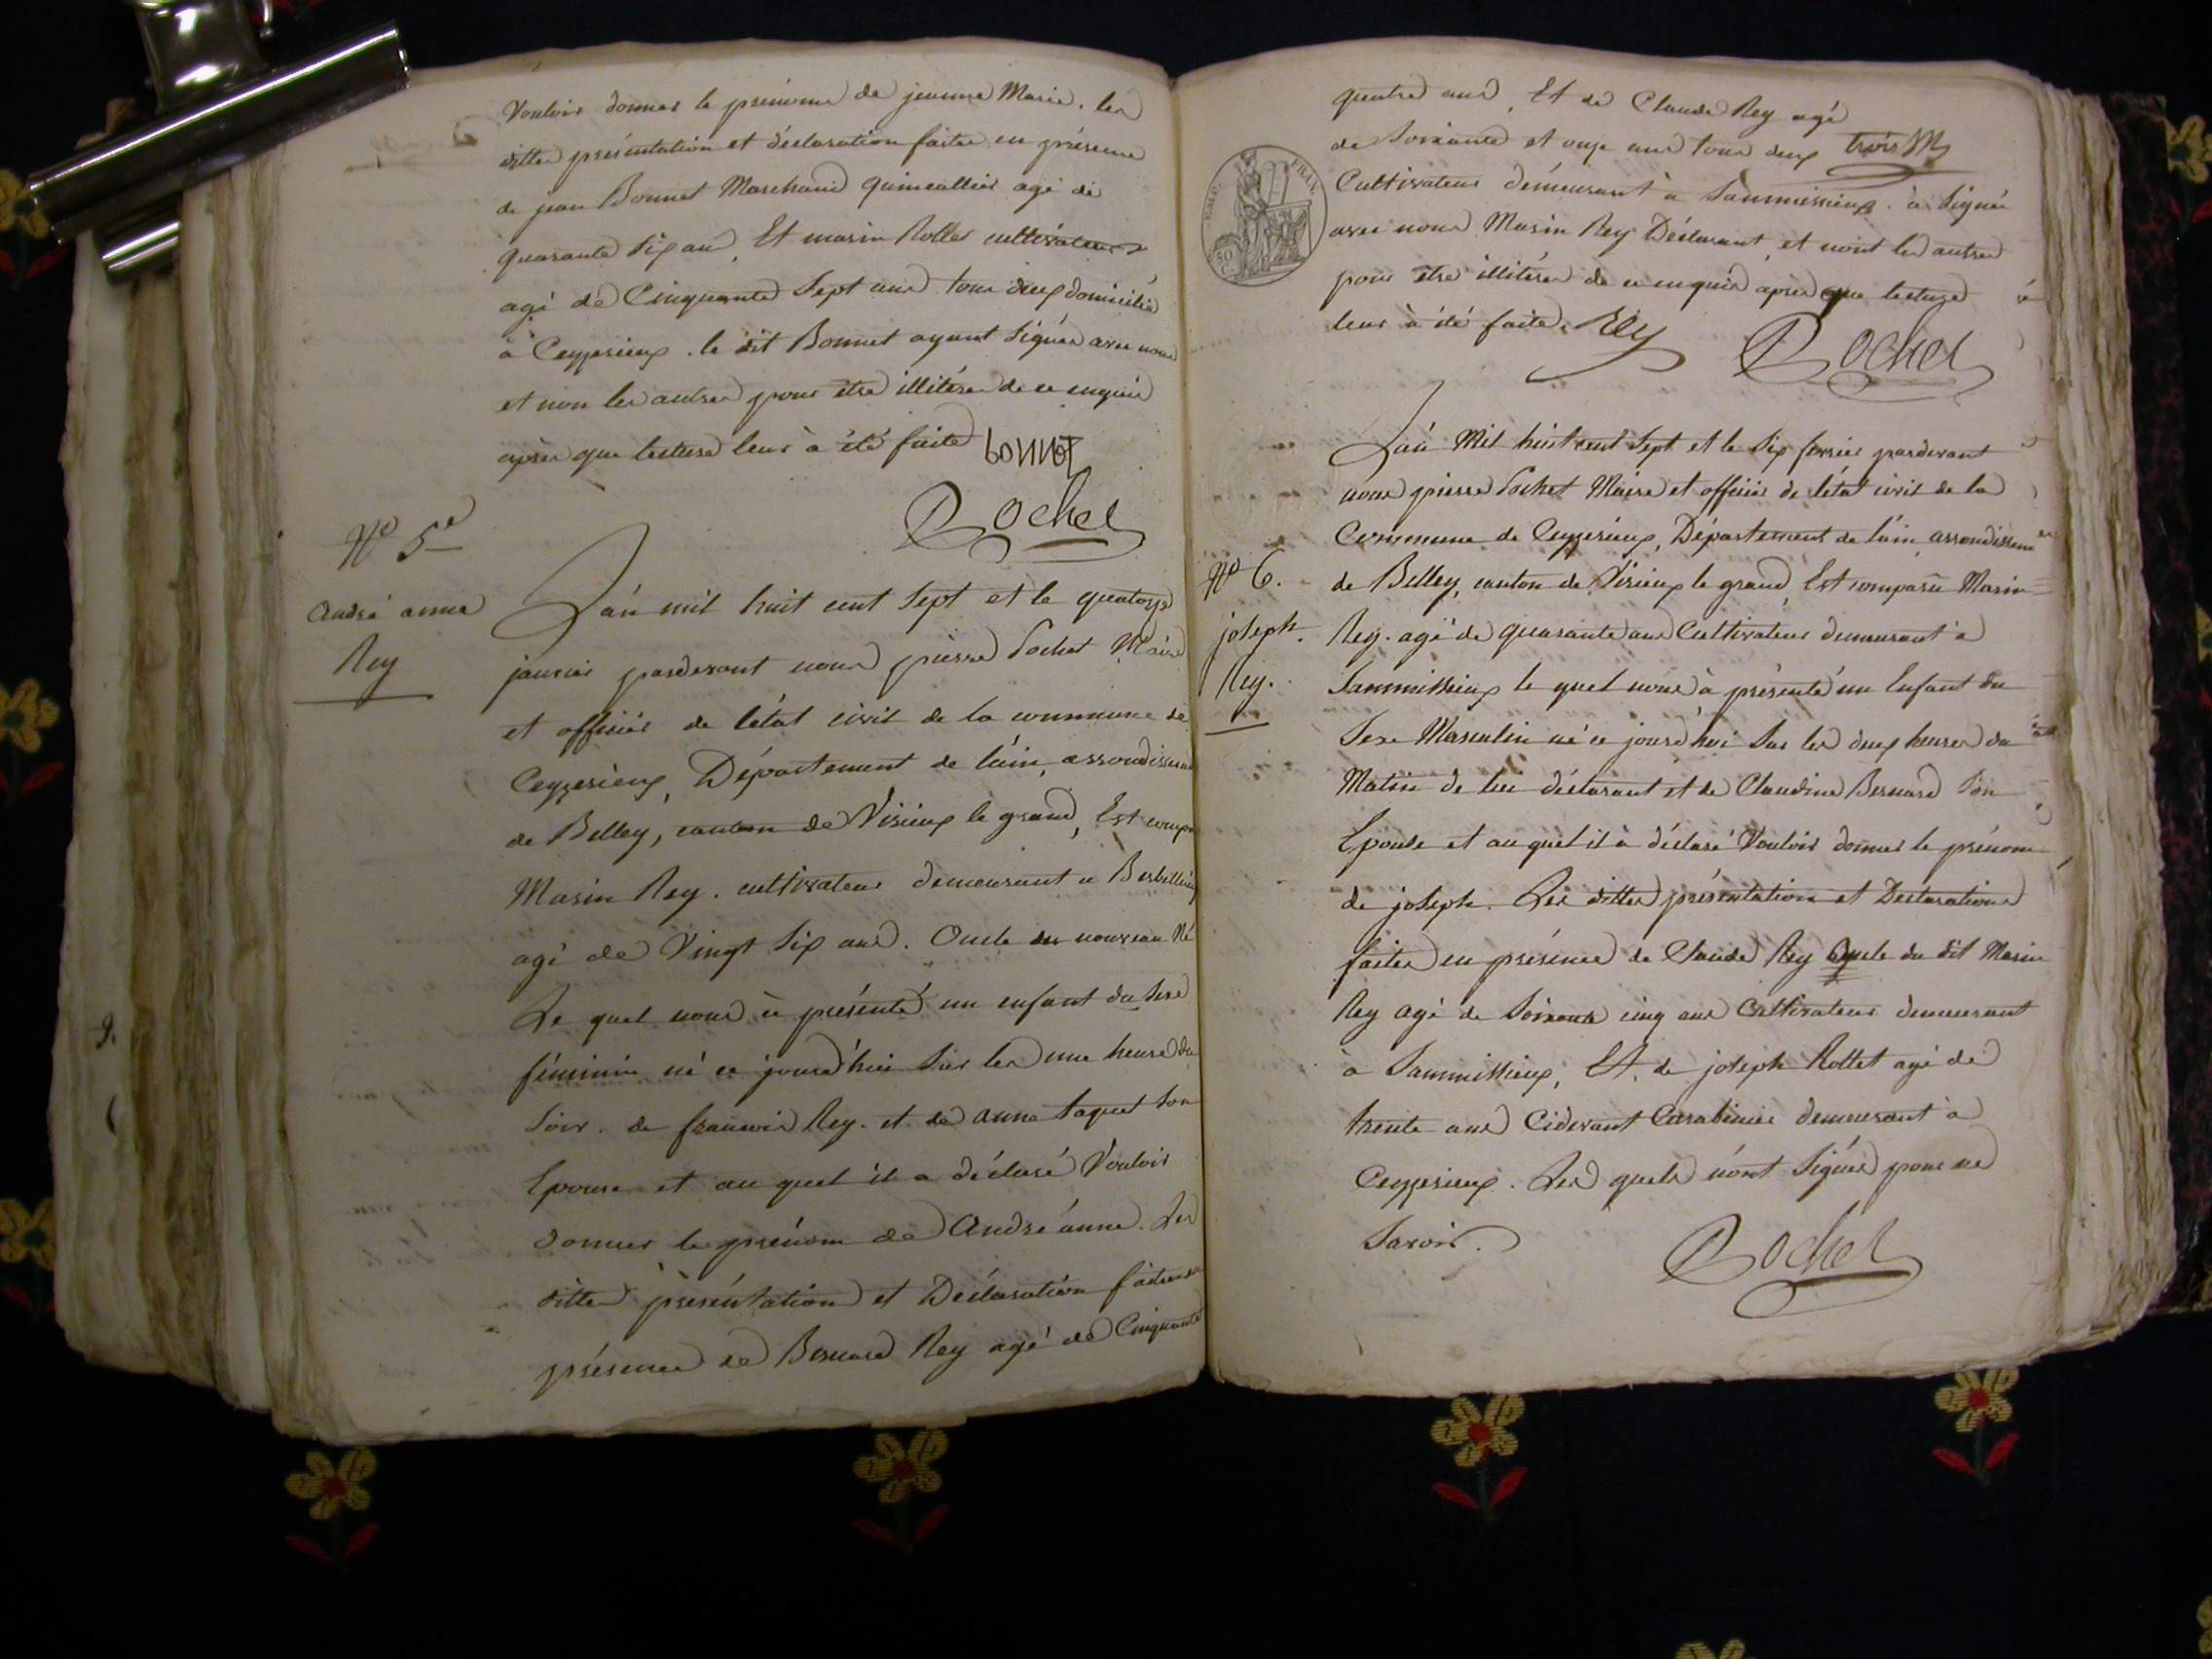 Vouloir donner le prénome de jeanne Marie. les
dittes présentation et déclaration faites en présence
de jean Bonnet Marchand quincallier agé de
quarante six ans, Et marin Rollet cultivateur
agé de Cinquante Sept ans tous deux domicilié
à Ceyzerieux. le dit Bonnet ayant Signée avec nous
et non les autres pour être illitéré de ce enquis
après que lecture leur à été faite bonnet
Pochet
N° 5e
André anne
Rey
L'an mil huit cent Sept et le quatorze
janvier pardevant nous pierre Pochet Maire
et officier de l'état civil de la commune de
Ceyzerieux, Département de l'ain, arrondissem
de Belley, canton de Virieux le grand, Est comp
Marin Rey. cultivateur demeurant a
agé de Vingt Six ans. Oncle du nouveau Né
Le quel nous à présenté un enfant du Sexe
féminin né ce jourd'hui Sur les une heure du
Soir. de francois Rey. et de anne Paquet Son
Epouse et au quel il a déclaré Vouloir
donner le prénom de André anne. Les
dittes présentation et Déclaration faites en
présence de Bernard Rey agé de Cinquante
quatre ans, Et de Claude Rey agé
de Soixante et onze ans tous deux trois M
EMP. FRAN.
50 C.
Cultivateur démeurant à Sammissieux. à Signée
avec nous Marin Rey Déclarant, et nont les autres
pour être illitéré de ce enquis après que lecture
leur à été faite. Rey
Pochet
L'an Mil huit cent Sept et le Six fevrier pardevant
nous pierre Pochet Maire et officier de l'état civil de la
Commune de Ceyzerieux, Département de l'ain, arrondissem
N° 6.
joseph.
Rey.
de Belley, canton de Virieux le grand, Est comparu Marin
Rey. agé de quarante ans Cultivateur demeurant a
Sammissieux le quel nous à présenté un Enfant du
Sexe Masculin né ce jourd'hui Sur les deux heures du
Matin de lui déclarant et de Claudine Bernard Son
Epouse et au quel il à déclaré Vouloir donner le prénome
de joseph. Les dittes présentation et Declarations
faites en présence de Claude Rey Oncle du dit Marin
Rey agé de Soixante cinq ans Cultivateur demeurant
à Sammissieux, Et de joseph Rollet agé de
trente ans Cidevant Carabinier demeurant à
Ceyzerieux. Les quels n'ont Signée pour ne
Savoir.
Pochet